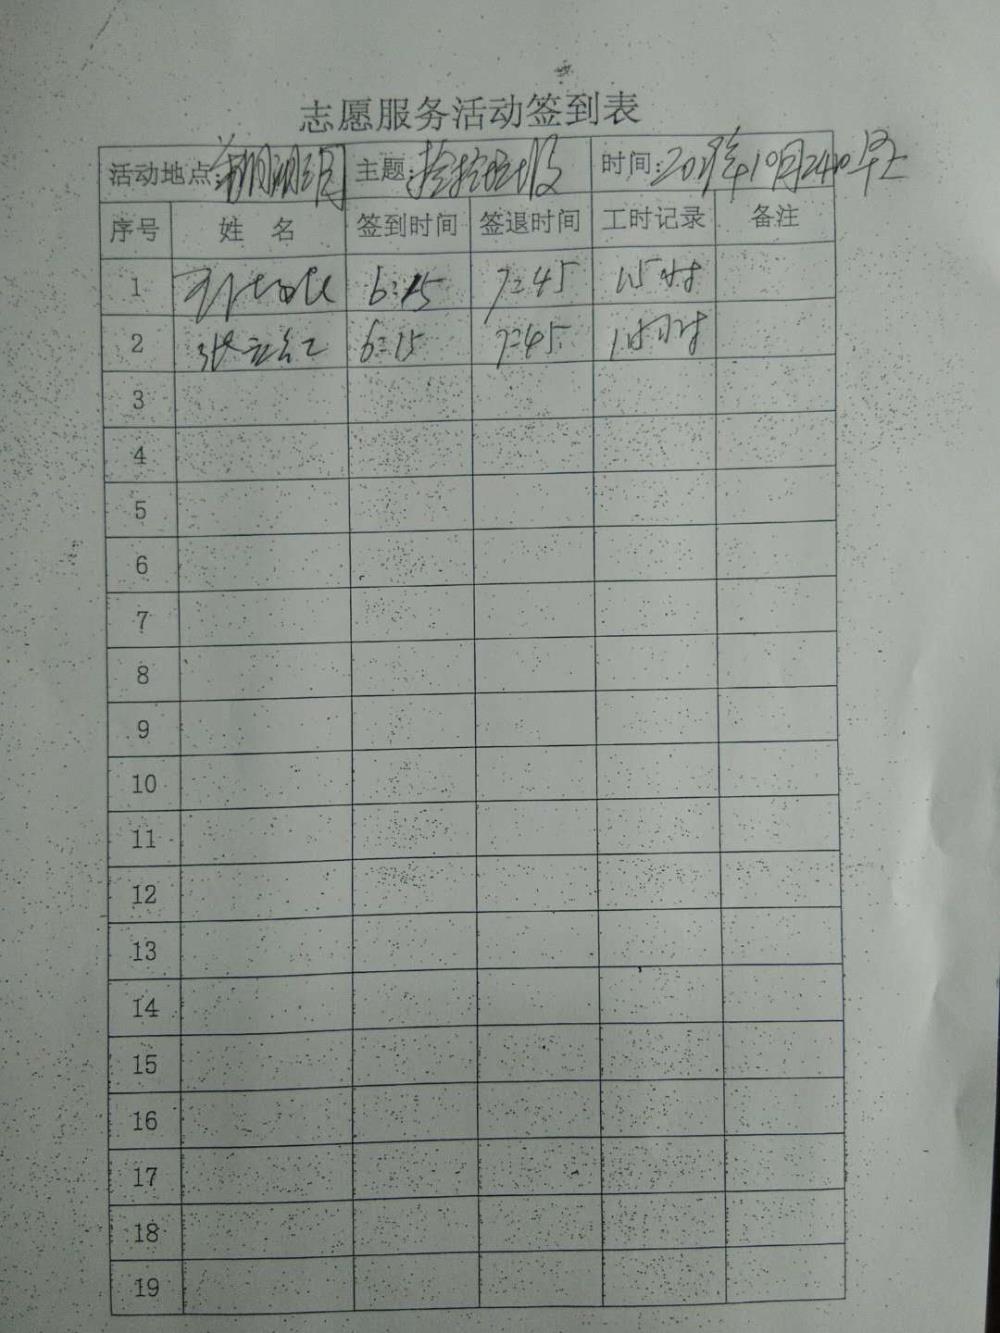 志愿服务活动签到表
活动地点: 主题: 捡拾垃圾 时间: 10月24日早上
序号 姓 名 签到时间 签退时间 工时记录 备注
1 6:15 7:45 1.5小时
2 张立红 6:15 7:45 1小时
3
4
5
6
7
8
9
10
11
12
13
14
15
16
17
18
19